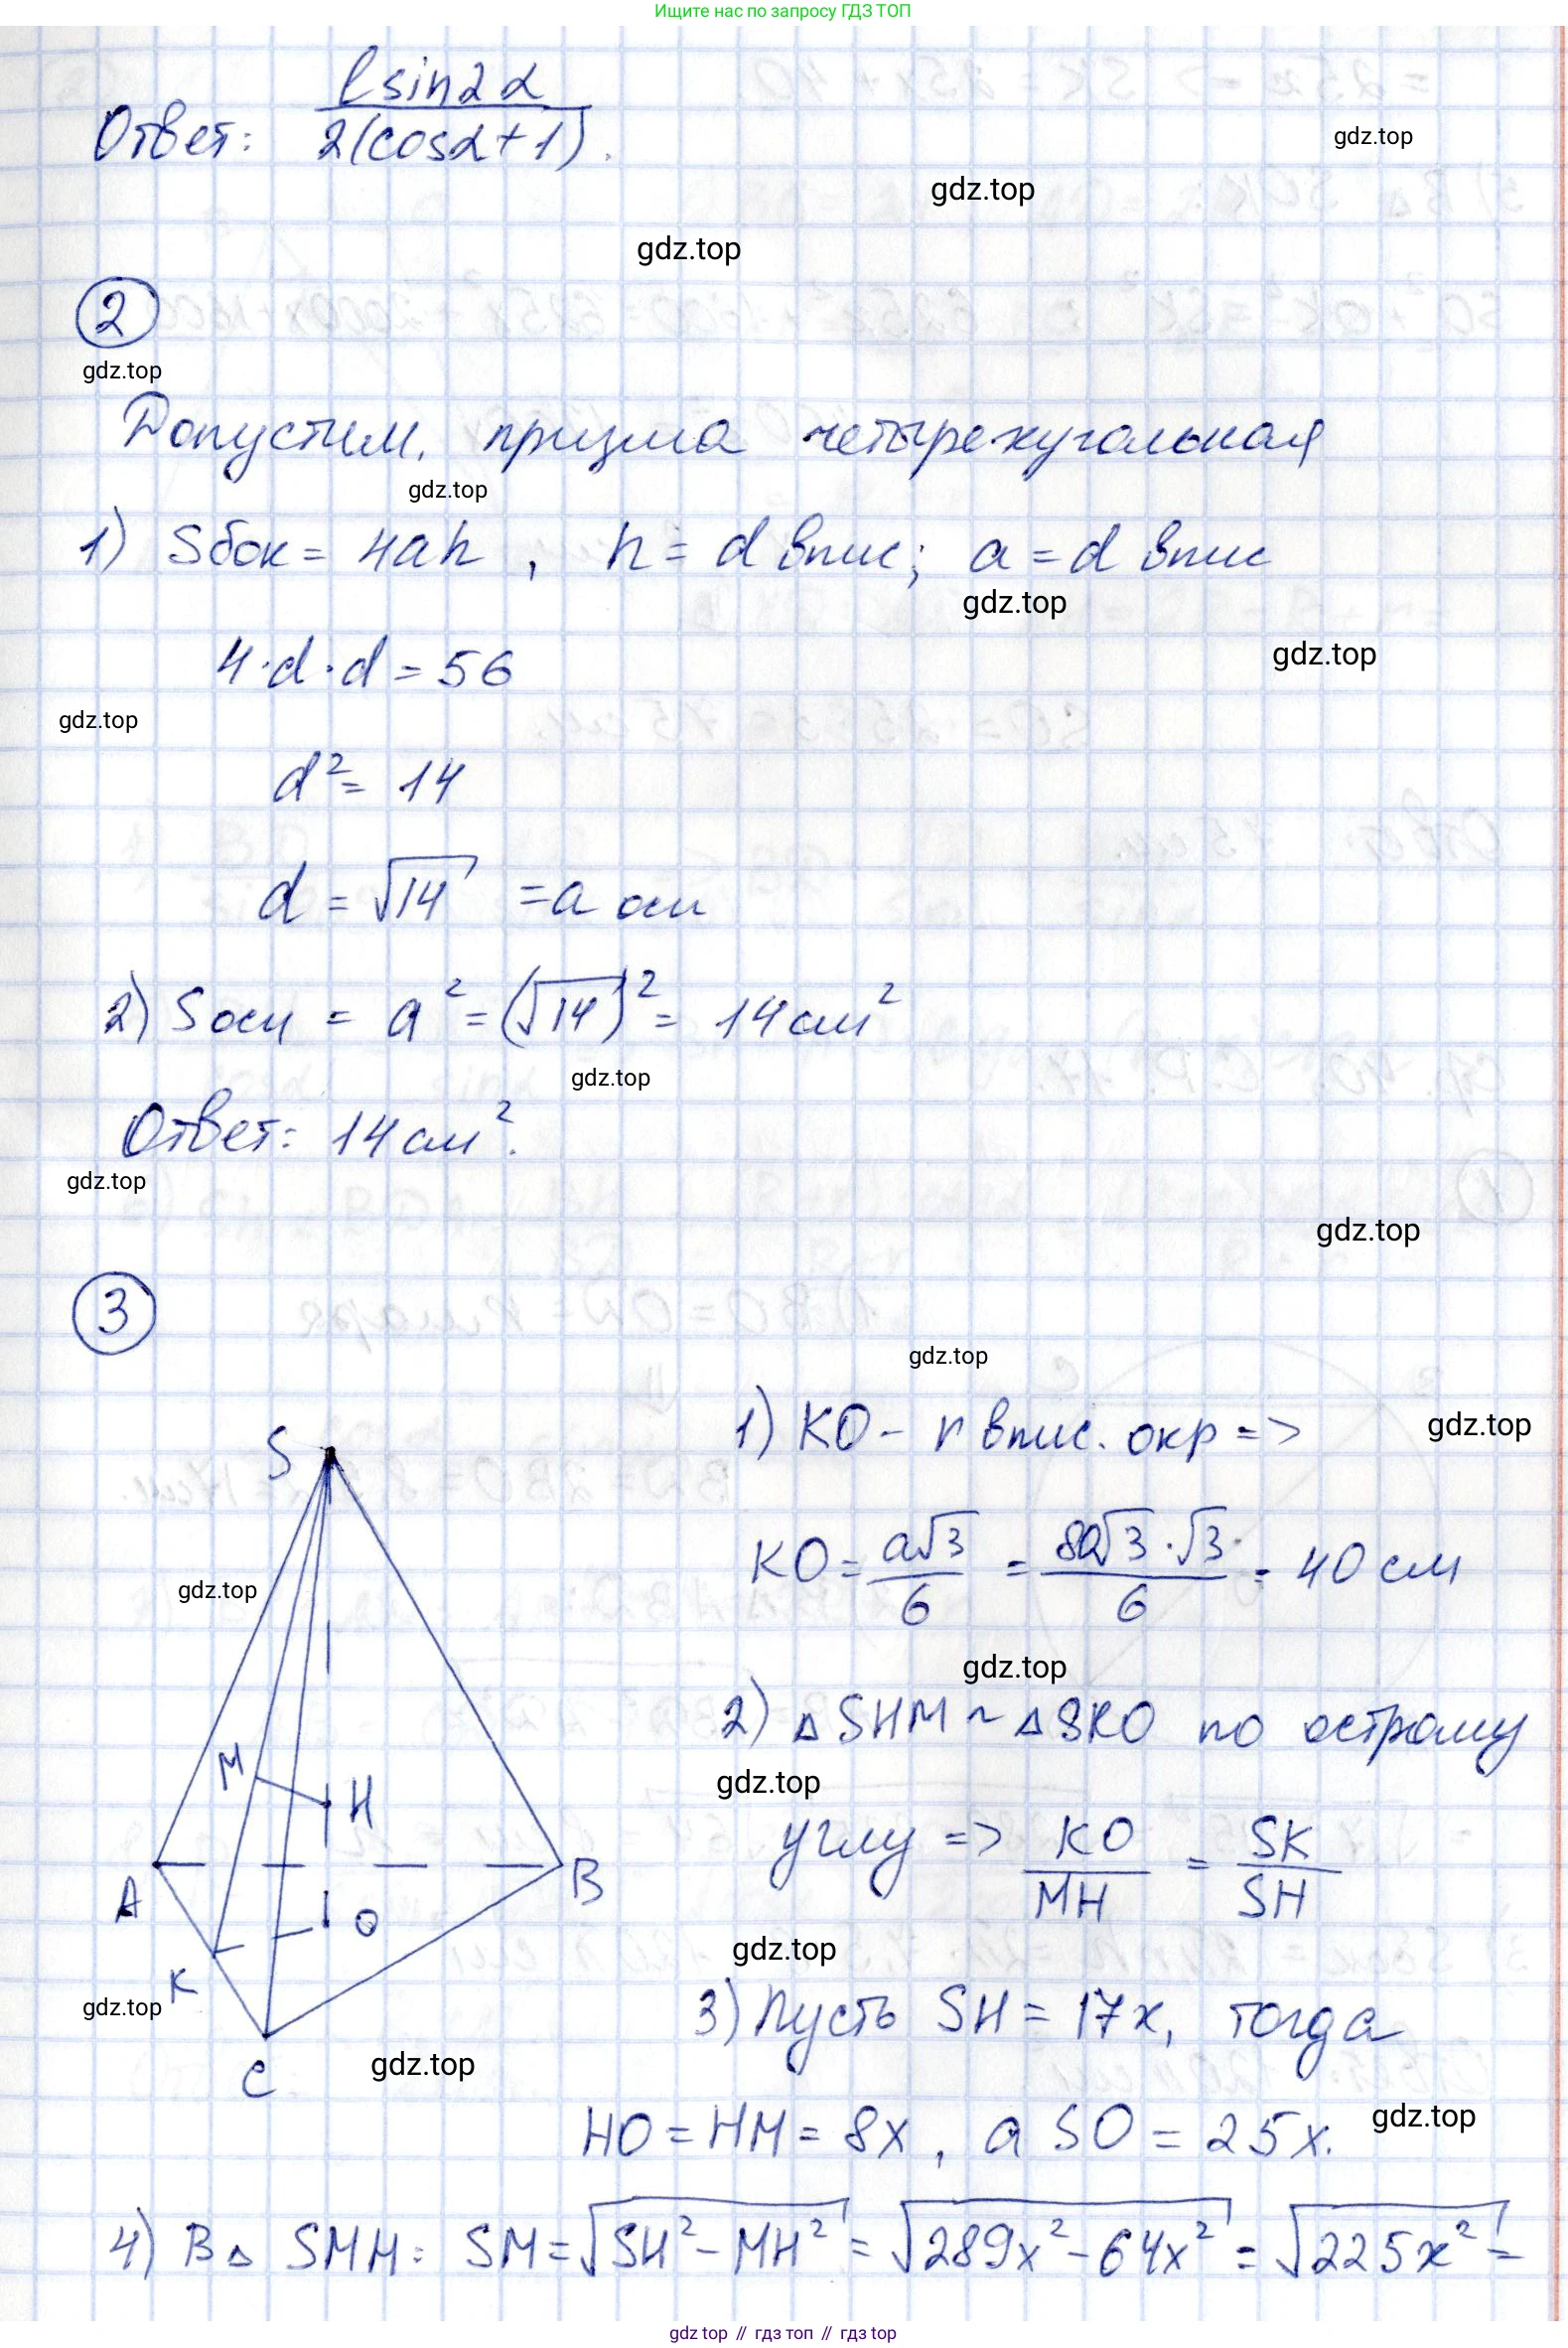 Ищите нас по запросу ГДЗ ТОП
Ответ: l sin2α / 2(cosα+1).
gdz.top
gdz.top
gdz.top
2
gdz.top
Допустим, призма четырехугольная
gdz.top
1) Sбок = 4ah, h = d впис; a = d впис
gdz.top
4·d·d = 56
gdz.top
gdz.top
d² = 14
d = √14 = a осн
2) Sосн = a² = (√14)² = 14 см²
gdz.top
Ответ: 14 см².
gdz.top
gdz.top
3
gdz.top
1) KO – r впис. окр =>
gdz.top
S
KO = a√3 / 6 = 80√3·√3 / 6 = 40 см
gdz.top
gdz.top
2) ΔSHM ~ ΔSKO по острому
M
H
gdz.top
углу => KO / MH = SK / SH
A
B
O
gdz.top
K
gdz.top
3) Пусть SH = 17x, тогда
C
gdz.top
HO = HM = 8x, а SO = 25x.
gdz.top
4) В Δ SMH: SM = √SH² – MH² = √289x² – 64x² = √225x² =
gdz top // гдз топ // гдз top